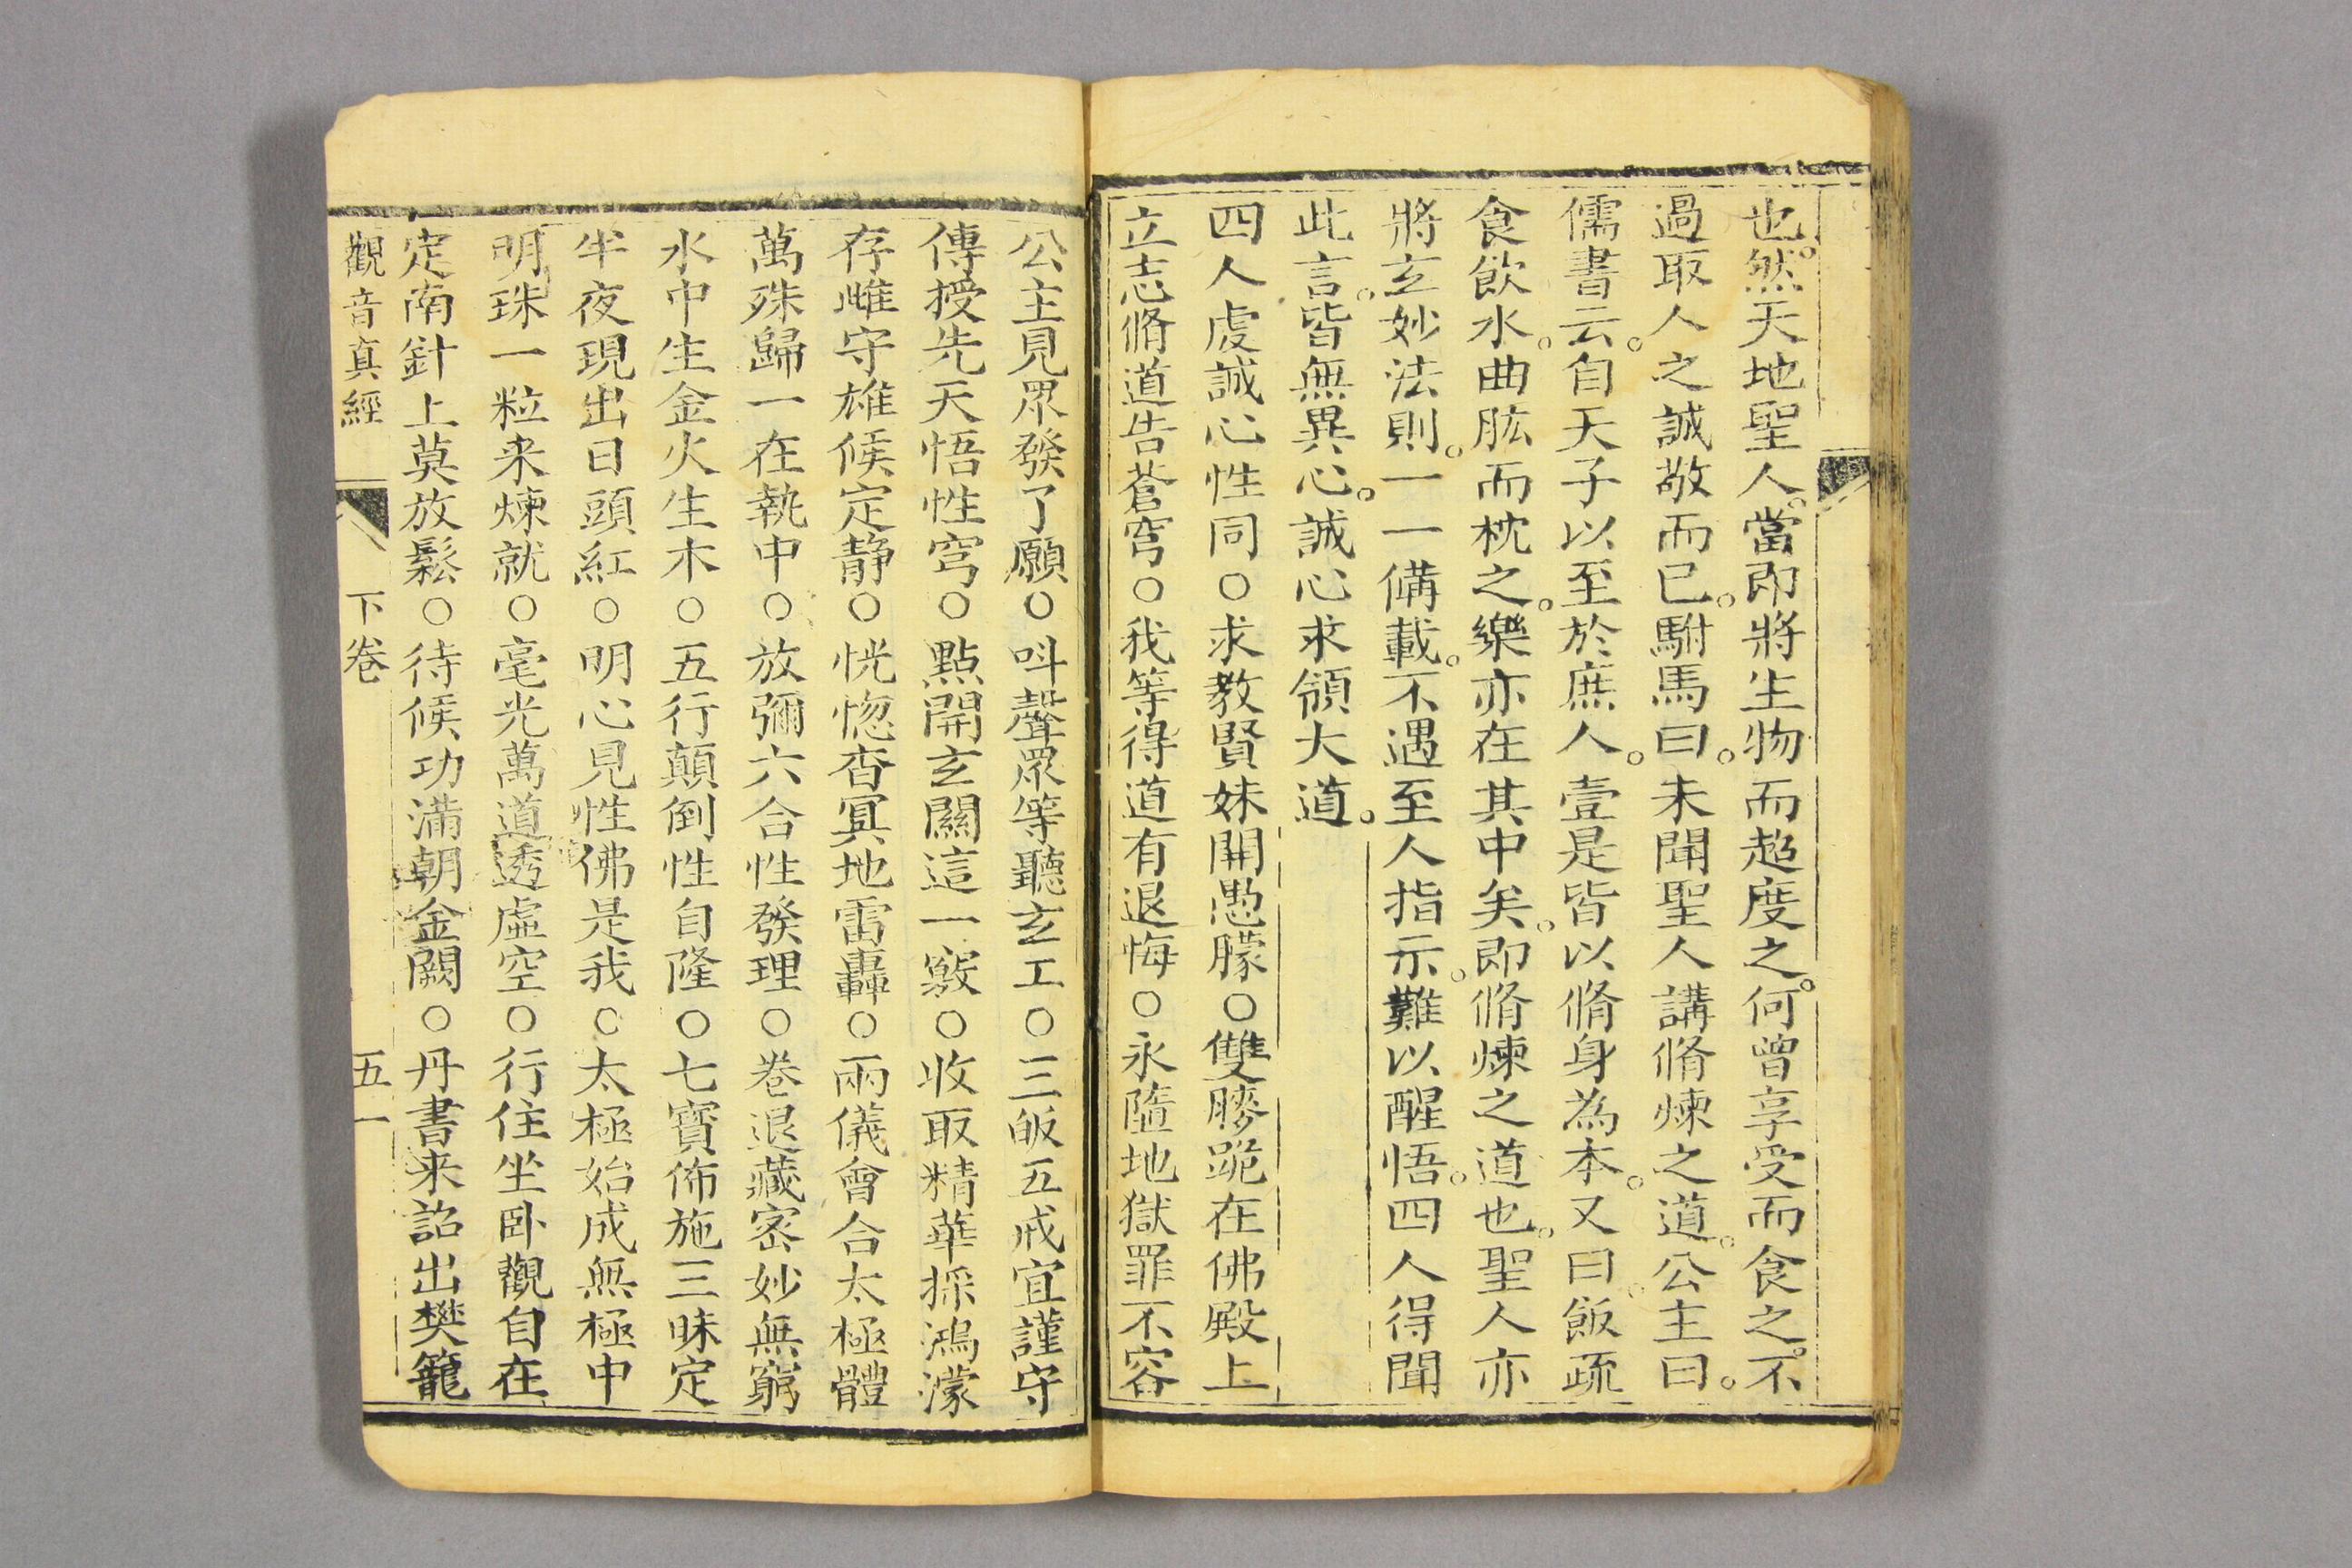 也。然天地聖人。當即將生物而超度之。何曾享受而食之。不
過取人之誠敬而已。駙馬曰。未聞聖人講脩煉之道。公主曰。
儒書云。自天子以至於庶人。壹是皆以脩身為本。又曰。飯疏
食飲水。曲肱而枕之。樂亦在其中矣。即脩煉之道也。聖人亦
將玄妙法則。一一備載。不遇至人指示。難以醒悟。四人得聞
此言。皆無異心。誠心求領大道。
四人虔誠心性同○求教賢妹開愚朦○雙膝跪在佛殿上
立志脩道告蒼穹○我等得道有退悔○永墮地獄罪不容
公主見眾發了願○呌聲眾等聽玄工○三皈五戒宜謹守
傳授先天悟性穹○點開玄關這一竅○收取精華採鴻濛
存雌守雄候定静○恍惚杳冥地雷轟○兩儀會合太極體
萬殊歸一在執中○放彌六合性發理○卷退藏密妙無窮
水中生金火生木○五行顛倒性自隆○七寶佈施三昧定
半夜現出日頭紅○明心見性佛是我○太極始成無極中
明珠一粒来煉就○毫光萬道透虛空○行住坐卧觀自在
定南針上莫放鬆○待候功滿朝金闕○丹書来詔出樊籠
觀音真經 下卷 五一